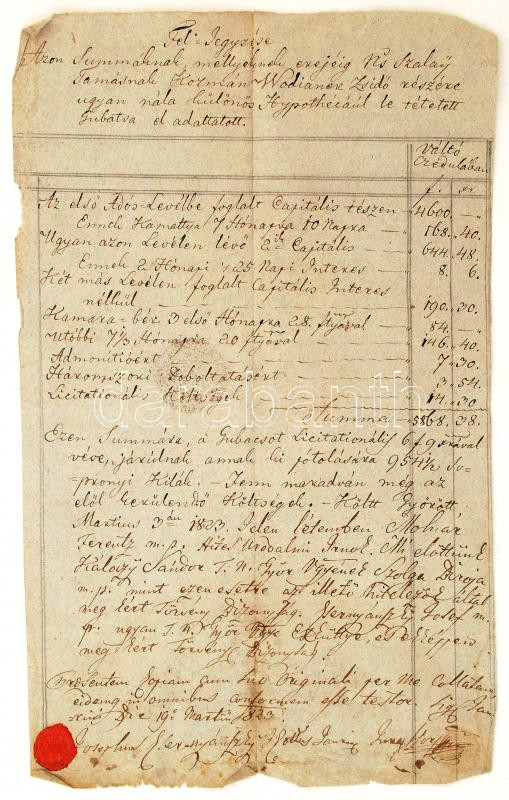 Fel-Jegyzése
Azon Summáknak, mellyeknek erejéig Ns Szalay
Tamásnak Kozmán Wodianer Zsidó részére
ugyan nála különös Hypothecául le tétetett
Gubatsa el adattatott.
Váltó
Czédulában
f. xr
Az első Ados-Levélbe foglalt Capitális tészen — 4600. —
Ennek Kamattya 7 Hónapra 10 Napra — 168. 40.
Ugyan azon Levélen lévő 2ik Capitális — 644. 48.
Ennek 2 Hónapi 's 25 Napi Interes — 8. 6.
Két más Levélen foglalt Capitális Interes
nélkül — 190. 30.
Kamara-bér 3 első Hónapra 28 ftjával — 84. —
Utóbbi 7 1/3 Hónapra 20 ftjával — 146. 40.
Admonitióért — 7. 30
Háromszori Doboltatásért 3. 54.
Licitationális Költségek 14. 30
Summa 5868. 38.
Ezen Summára, a Gubacsot Licitationális 6 f 9 xrával
véve, járúlnak annak ki pótolására 954 1/2 So-
pronyi Kilák. — Fenn maradván még az
elől kerülendő Költségek. — Költt Győrött
Martius 3án 1823. Jelen létemben Molnár
Ferentz m.p. Hites Uradalmi Irnok. Mi előttünk
Kálózy Sándor T. N. Győr Vgyének Szolga Birája
m.p. mint ezen esetre az illető hitelezők által
meg kért Törvény Bizonyság. Csernyánszky Josef m.
p. ugyan T. N. Győr Vgye Esküttye, es a képen
meg kért Törvény Bizonyság
Praesentem Copiam cum suo Originali per me Collatam
eidemq in omnibus conformem esse testor. Sig
Die 19a Martii 1823
Josephus Csernyánszky
darabanth